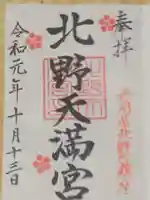 奉拝
北野天満宮
令和元年十月十三日